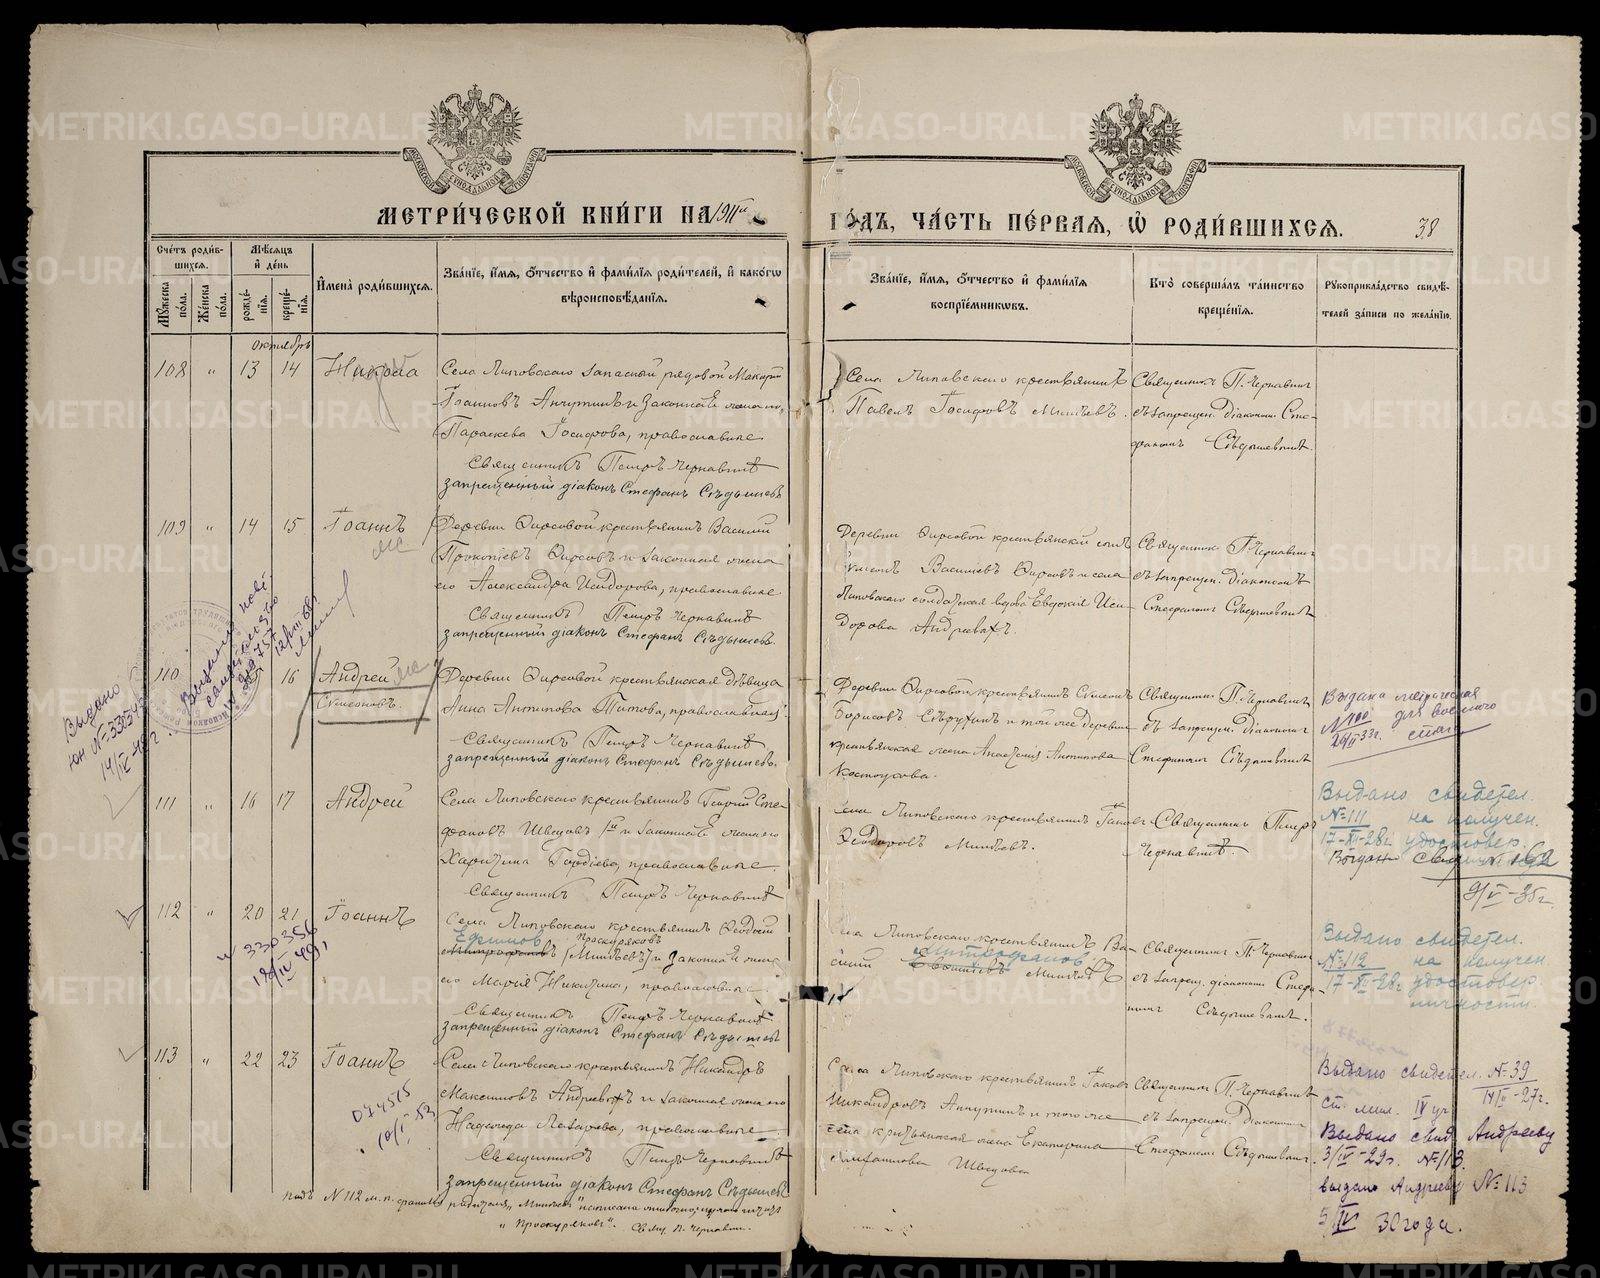 МЕТРИ́ЧЕСКОЙ КНИ́ГИ НА 1911й
ГО́ДЪ, ЧА́СТЬ ПЕ́РВАЯ, Ѡ РОДИ́ВШИХСЯ.
38
Сче́тъ роди́в-
шихся.
Мѣ́сяцъ
и҆ де́нь
Му́жеска по́ла.
Же́нска по́ла.
рожде́-
нїя.
креще́-
нїя.
И҆мена̀ роди́вшихся.
Зва́нїе, и҆́мя, ѻ҆́тчество и҆ фами́лїя роди́телей, и҆ како́гѡ
вѣроисповѣ́данїя.
Зва́нїе, и҆́мя, ѻ҆́тчество и҆ фами́лїя
воспрїе́мникѡвъ.
Кто̀ соверша́лъ та́инство
креще́нїя.
Рꙋкоприкла́дство свидѣ́-
телей за́писи по жела́нїю.
Октябрь
108 " 13 14 Никола
Села Липовскаго запасный рядовой Макарий
Іоанновъ Анчутинъ и законная жена его
Параскева Іосифова, православные
Священникъ Петръ Чернавинъ
запрещенный діаконъ Стефанъ Сѣдышевъ
Села Липовскаго крестьянинъ
Павелъ Іосифовъ Минѣевъ.
Священник П. Чернавин
съ запрещен. Діаконом Сте-
фаномъ Сѣдышевымъ
109 " 14 15 Іоаннъ
Деревни Фирсовой крестьянинъ Василий
Прокопіевъ Фирсовъ и законная жена
его Александра Исидорова, православные
Священникъ Петръ Чернавинъ
запрещенный діаконъ Стефанъ Сѣдышевъ.
Деревни Фирсовой крестьянскій сынъ
Василіевъ Фирсовъ и села
Липовскаго солдатская вдова Евдокія Иси-
дорова Андреевыхъ.
Священник П. Чернавин
съ запрещен. Діакономъ
Стефаномъ Сѣдышевымъ
110 16 Андрей
Симеоновъ.
Деревни Фирсовой крестьянская дѣвица
Анна Антипова Титова, православная.
Священникъ Петръ Чернавинъ
запрещенный діаконъ Стефанъ Сѣдышевъ.
Деревни Фирсовой крестьянинъ Симеонъ
Борисовъ и той же деревни
крестьянская жена Анастасія Антипова
Костоусова.
Священник П. Чернавинъ
съ запрещен. Діаконом
Стефаномъ Сѣдышевымъ
Выдана метрическая
№ 100 для военного
26/II 33г. стола
Выдано
14/IV-49г.
111 " 16 17 Андрей
Села Липовскаго крестьянинъ Георгій Сте-
фановъ Швецовъ 1й и законная жена его
Харитина Гордіева, православные.
Священникъ Петръ Чернавинъ
Села Липовскаго крестьянинъ Іаковъ
Ѳеодоровъ Минѣевъ.
Священникъ Петръ
Чернавинъ.
Выдано свидетел.
№ 111 на получен.
17-XII-28г. удостовер.
Выдано свид. № 162
9/V-35г.
112 " 20 21 Іоаннъ
330356
19/IV 49г.
Села Липовскаго крестьянинъ Ѳеодосій
Ефимов Проскуряковъ
Митрофановъ [Минѣевъ] и законная жена
его Марія Никитина, православные.
Священникъ Петръ Чернавинъ
запрещенный діаконъ Стефанъ Сѣдышевъ
Села Липовскаго крестьянинъ Ва-
силій Митрофанов Минѣевъ
Священник П. Чернавин
съ запрещ. діаконом Стефа-
номъ Сѣдышевымъ.
Выдано свидетел.
№ 112 на получен
17-XII-28г удостовер.
личности.
113 " 22 23 Іоаннъ
074515
10/I 53
Села Липовскаго крестьянинъ Никандръ
Максимовъ Андреевыхъ и законная жена его
Надежда Лазарева, православные
Священникъ Петръ Чернавинъ
запрещенный діаконъ Стефанъ Сѣдышевъ
Села Липовскаго крестьянинъ Іаковъ
Никандровъ Анчутинъ и того же
села крестьянская жена Екатерина
Швецова
Священник П. Чернавинъ
съ запрещен. Діаконом
Стефаном Сѣдышевымъ.
Выдано свидетел. № 39
14/II-27г.
Выдано свид. Андрееву
3/IV-29г. № 113.
выдано Андрееву № 113
5/IV 30 года.
подъ № 112 м. п. фамилія родителя "Минѣевъ" написана ошибочно;
"Проскуряковъ". Свящ. П. Чернавин.
METRIKI.GASO-URAL.RU